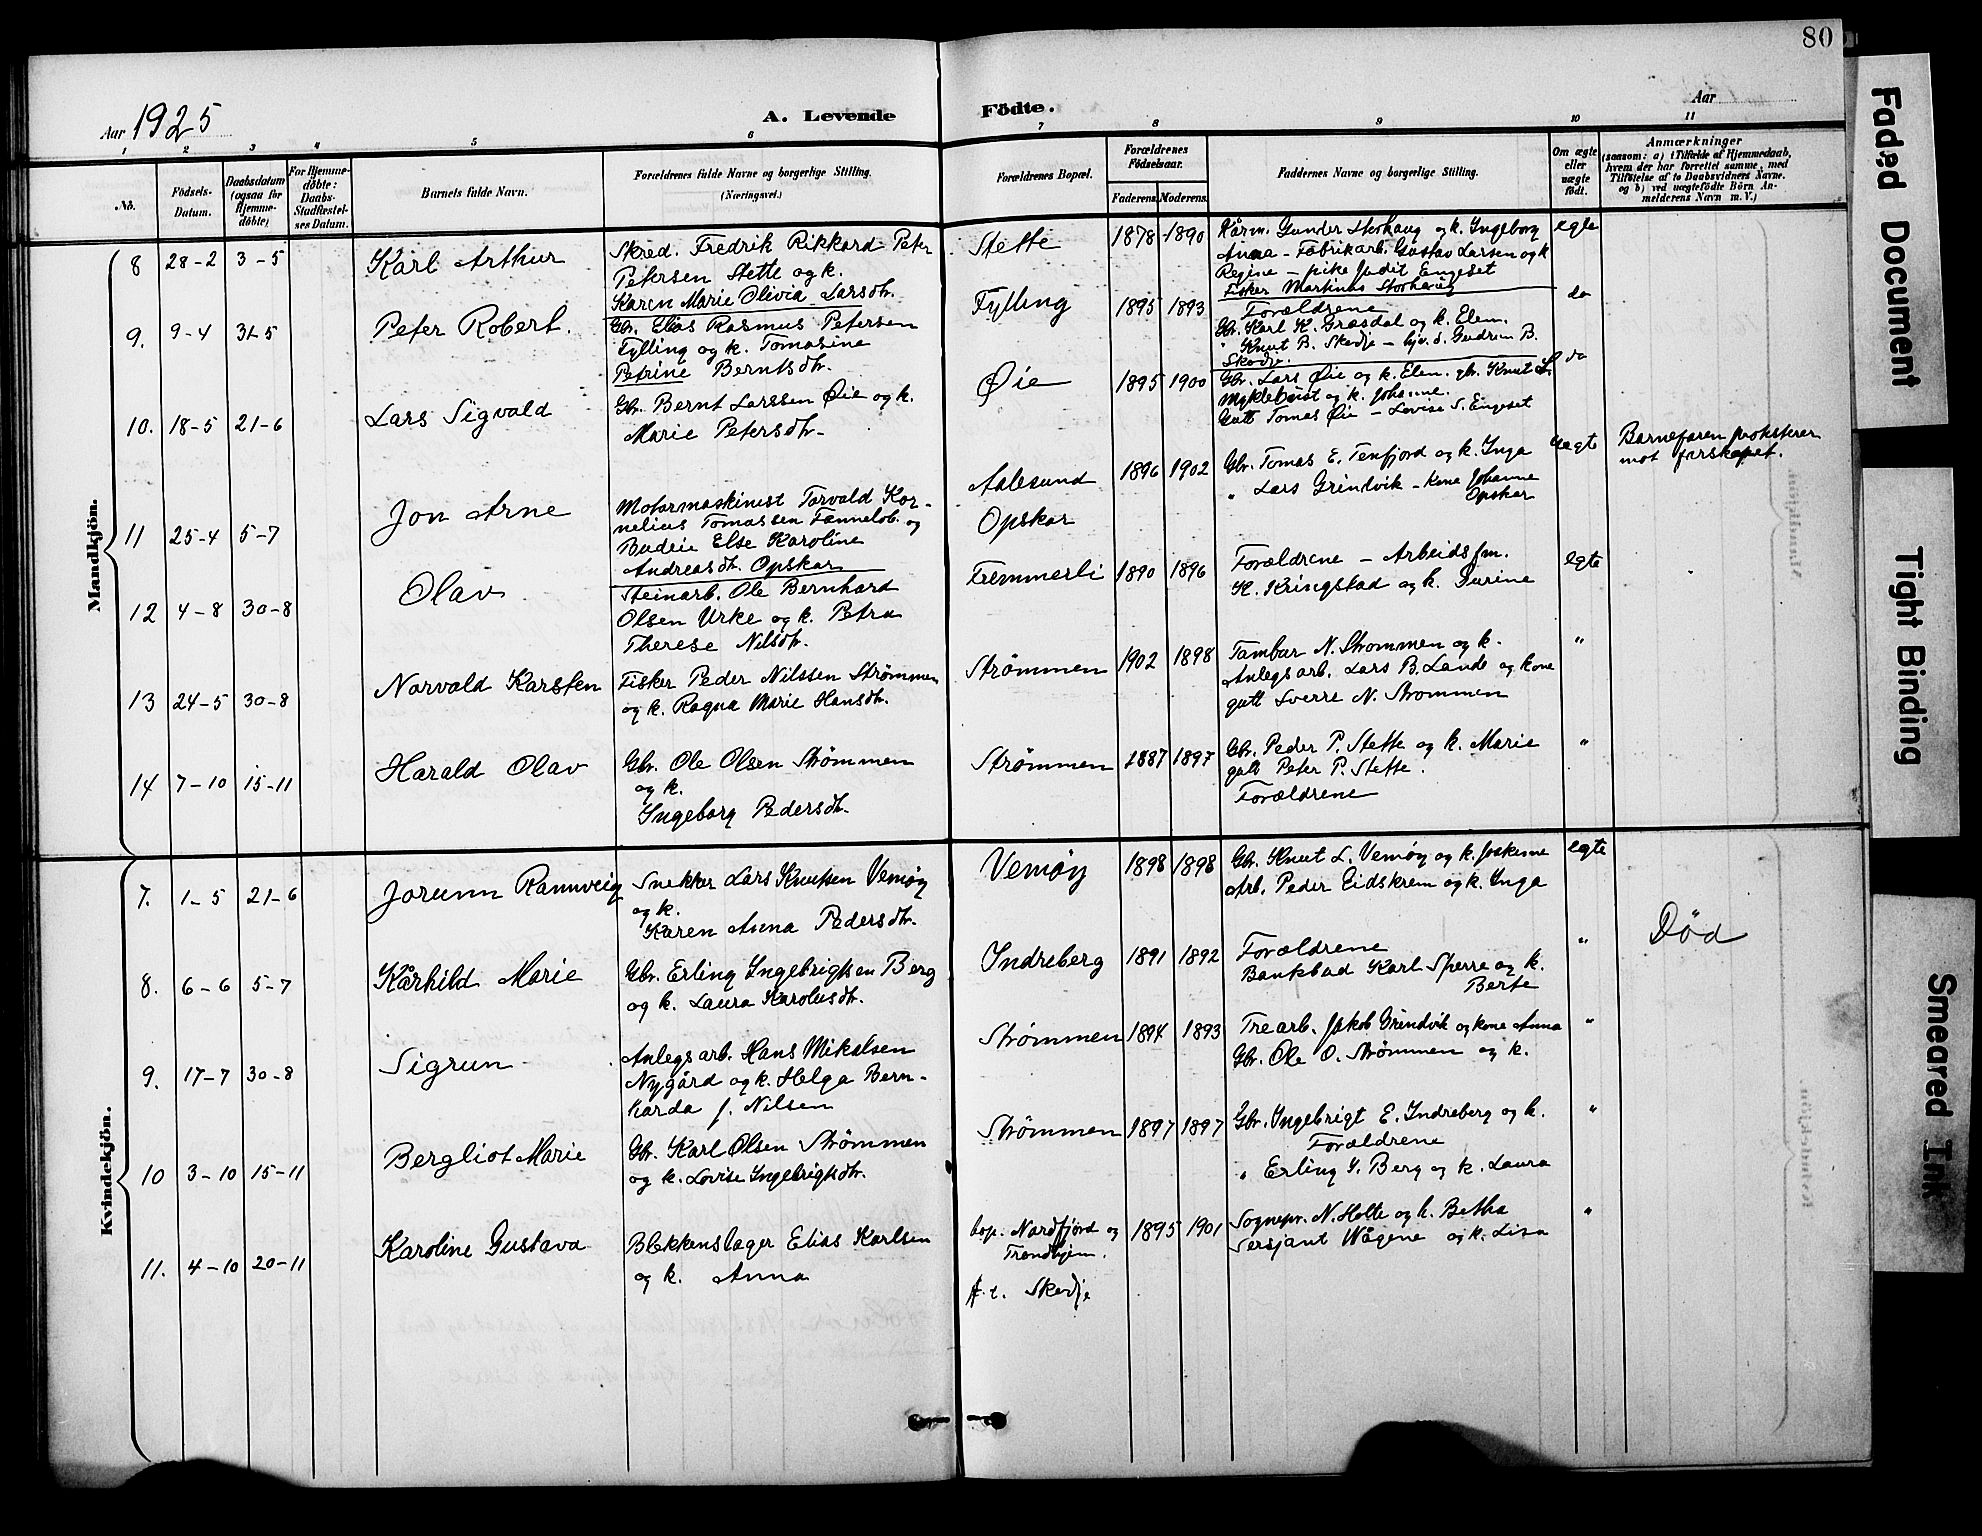 80
Aar 1925
A. Levende Födte.
Aar
1 2 3 4 5 6 7 8 9 10 11
No.
Födsels-Datum.
Daabsdatum (ogsaa for Hjemme-döbte)
For Hjemme-döbte: Daabs-Stadfæstel-ses Datum.
Barnets fulde Navn.
Forældrenes fulde Navne og borgerlige Stilling. (Næringsvei.)
Forældrenes Bopæl.
Forældrenes Födselsaar.
Faderens. Moderens.
Faddernes Navne og borgerlige Stilling.
Om ægte eller uægte födt.
Anmærkninger
(saasom: a) i Tilfælde af Hjemmedaab, hvem der har forrettet samme, med Tilföielse af to Daabsvidners Navne. og b) ved uægtefödte Börn An-melderens Navn m. V.)
Mandkjön.
8 28-2 3-5 Karl Arthur
Skred. Fredrik Rikkard Peter
Petersen Stette og k.
Karen Marie Olivia Larsdtr.
Stette 1878 1890
Gunder Storhaug og k. Ingeborg
Anna - Fabrikarb. Gustav Larsen og k
Regine - pike Judit Engeset
Fisker Martinus Storhaug
egte
9. 9-4 31-5 Peter Robert.
Gbr. Elias Rasmus Petersen
Fylling og k. Tomasine
Petrine Berntsdtr.
Fylling 1895 1893
Forældrene
Gbr. Karl K. Græsdal og k. Elen.
" Knut B. Skodje - hjv. d. Gudrun B.
Skodje.
do
10. 18-5 21-6 Lars Sigvald
Gbr. Bernt Larssen Øie og k.
Marie Petersdtr.
Øie 1895 1900
Gbr. Lars Øie og k. Elen. gbr. Knut L.
Myklebust og k. Johanne.
Gutt Tomas Øie - Lovise S. Engeset
do
11 25-4 5-7 Jon Arne
Motormaskinist Torvald Kor-
nelius Tomassen Fannelob. og
Budeie Else Karoline
Andreasdtr. Opskar
Aalesund
Opskar
1896 1902
Gbr. Tomas E. Tenfjord og k. Inga
" Lars Grindvik - kone Johanne
Opskar
uegte
Barnefaren protsterer
mot farskapet.
12 4-8 30-8 Olav
Steinarb. Ole Bernhard
Olsen Urke og k. Petra
Therese Nilsdtr.
Fremmerli 1890 1896
Forældrene - Arbeidsfm.
K. Kringstad og k. Gurine
egte
13 24-5 30-8 Norvald Karsten
Fisker Peder Nilssen Strømmen
og k. Ragna Marie Hansdtr.
Strømmen 1902 1898
Tambar N. Strommen og k.
Anlegsarb. Lars B. Lande og kone
gutt Sverre N. Strommen
"
14 7-10 15-11 Harald Olav
Gbr. Ole Olsen Strømmen
og k.
Ingeborg Pedersdtr.
Strømmen 1887 1897
Gbr. Peder P. Stette og k. Marie
gutt Peter P. Stette.
Forældrene
"
Kvindekjön.
7. 1-5 21-6 Jorunn Rannveig
Snekker Lars Knutsen Vemøy
og k.
Karen Anna Pedersdtr.
Vemøy 1898 1898
Gbr. Knut L. Vemøy og k. Joakime
Arb. Peder Eidskrem og k. Inga
egte
8. 6-6 5-7 Kårhild Marie
Gbr. Erling Ingebrigtsen Berg
og k. Laura Karolusdtr.
Indreberg 1891 1892
Forældrene
Bankbud Karl Sperre og k.
Berte
"
Død
9. 17-7 30-8 Sigrun
Anlegsarb. Hans Mikalsen
Nygård og k. Helga Bern-
harda f. Nilsen
Strømmen 1894 1893
Trearb. Jakob Grindvik og kone Anna
Gbr. Ole O. Strømmen og k.
"
10 3-10 15-11 Bergliot Marie
Gbr. Karl Olsen Strømmen
og k. Lovise Ingebrigtsdtr.
Strømmen 1897 1897
Gbr. Ingebrigt E. Indreberg og k.
Forældrene
" Erling I. Berg og k. Laura
"
11. 4-10 20-11 Karoline Gustava
Blekkenslager Elias Karlsen
og k. Anna
bop. Nordfjord og
Trondhjem.
f. t. Skodje
1895 1901
Sognepr. N. Holte og h. Betha
Sersjant Wågene og k. Lisa
"
Faded Document
Tight Binding
Smeared Ink